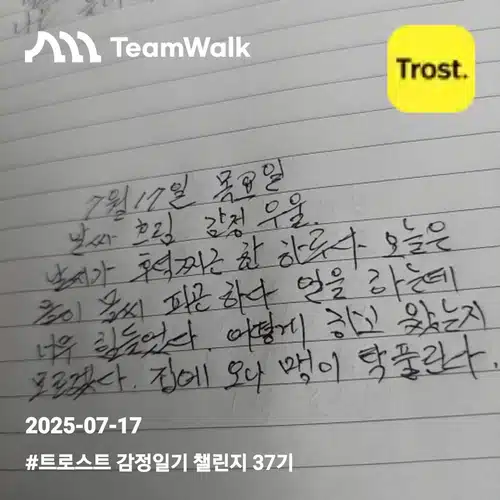 TeamWalk
Trost.
7월 17일 목요일
날씨 흐림 감정 우울.
날씨가 후덥찌근 한 하루다 오늘은
몸이 몹씨 피곤 하다 일을 하는데
너무 힘들었다. 어떻게 하고 왔는지
모르겠다. 집에 오니 맥이 탁풀린다.
2025-07-17
#트로스트 감정일기 챌린지 37기